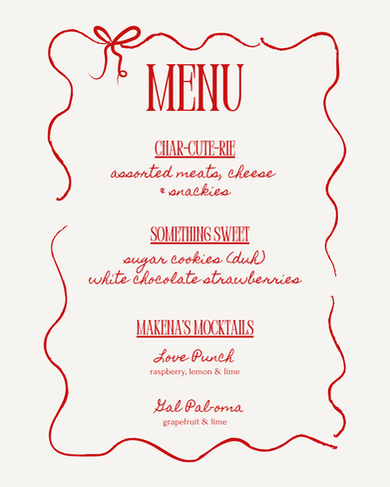 MENU
CHAR-CUTE-RIE
assorted meats, cheese
& snackies
SOMETHING SWEET
sugar cookies (duh)
white chocolate strawberries
MAKENA'S MOCKTAILS
Love Punch
raspberry, lemon & lime
Gal Pal-oma
grapefruit & lime